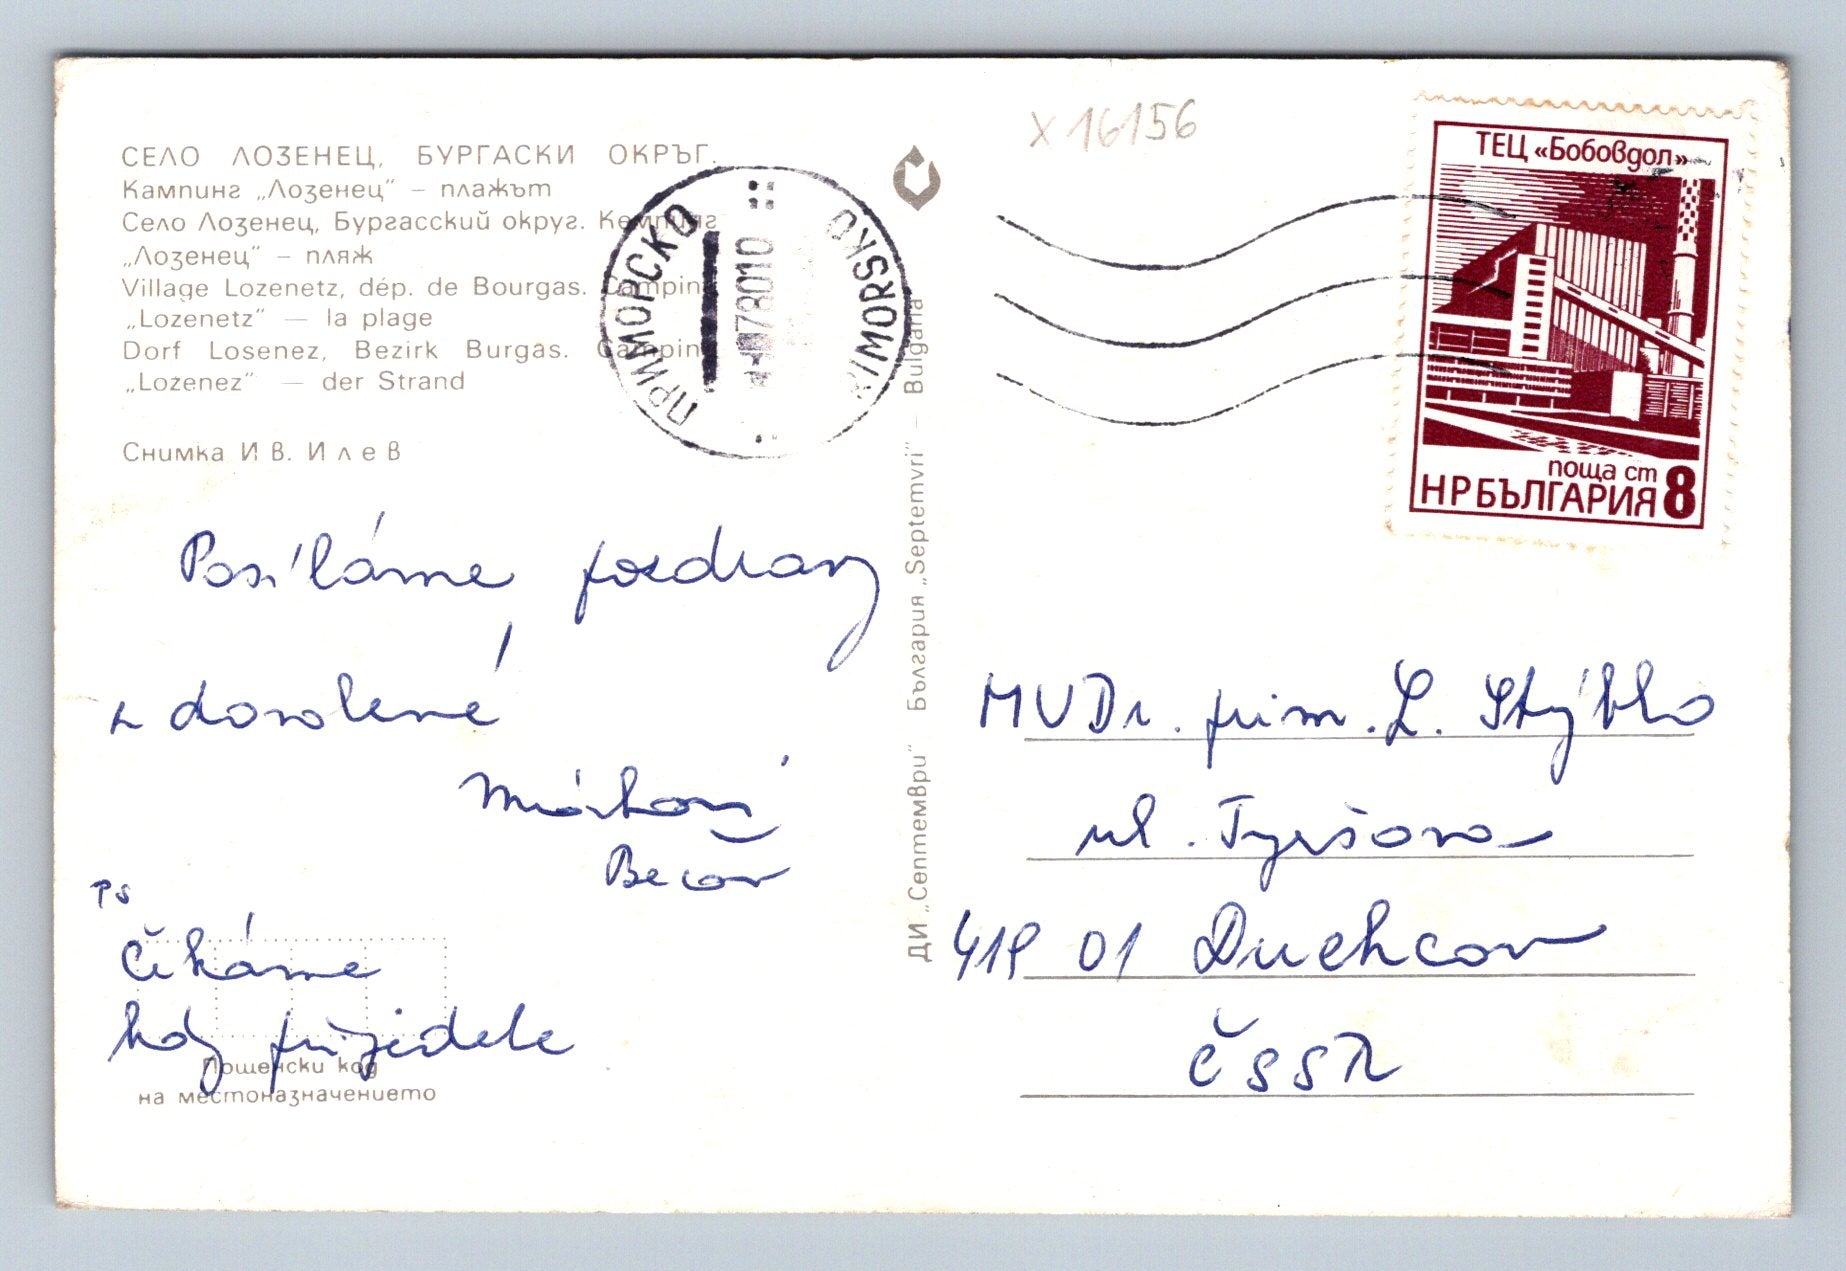 СЕЛО ЛОЗЕНЕЦ, БУРГАСКИ ОКРЪГ.
Кампинг „Лозенец" – плажът
Село Лозенец, Бургасский округ. Кемпинг
„Лозенец" – пляж
Village Lozenetz, dép. de Bourgas. Camping
„Lozenetz" — la plage
Dorf Losenez, Bezirk Burgas. Camping
„Lozenez" — der Strand
Снимка Ив. Илев
ПРИМОРСКО
78010
PRIMORSKO
X 16156
ТЕЦ «Бобовдол»
поща ст
НРБЪЛГАРИЯ 8
ДИ „Септември" България „Septemvri" – Bulgaria
Posíláme pozdravy
z dovolené
Márkovi
Becov
PS
Čekáme
kdy přijedete
Пощенски код
на местоназначението
MVDr. prim. L. Stýblo
ul. Tyršova
419 01 Duchcov
ČSSR